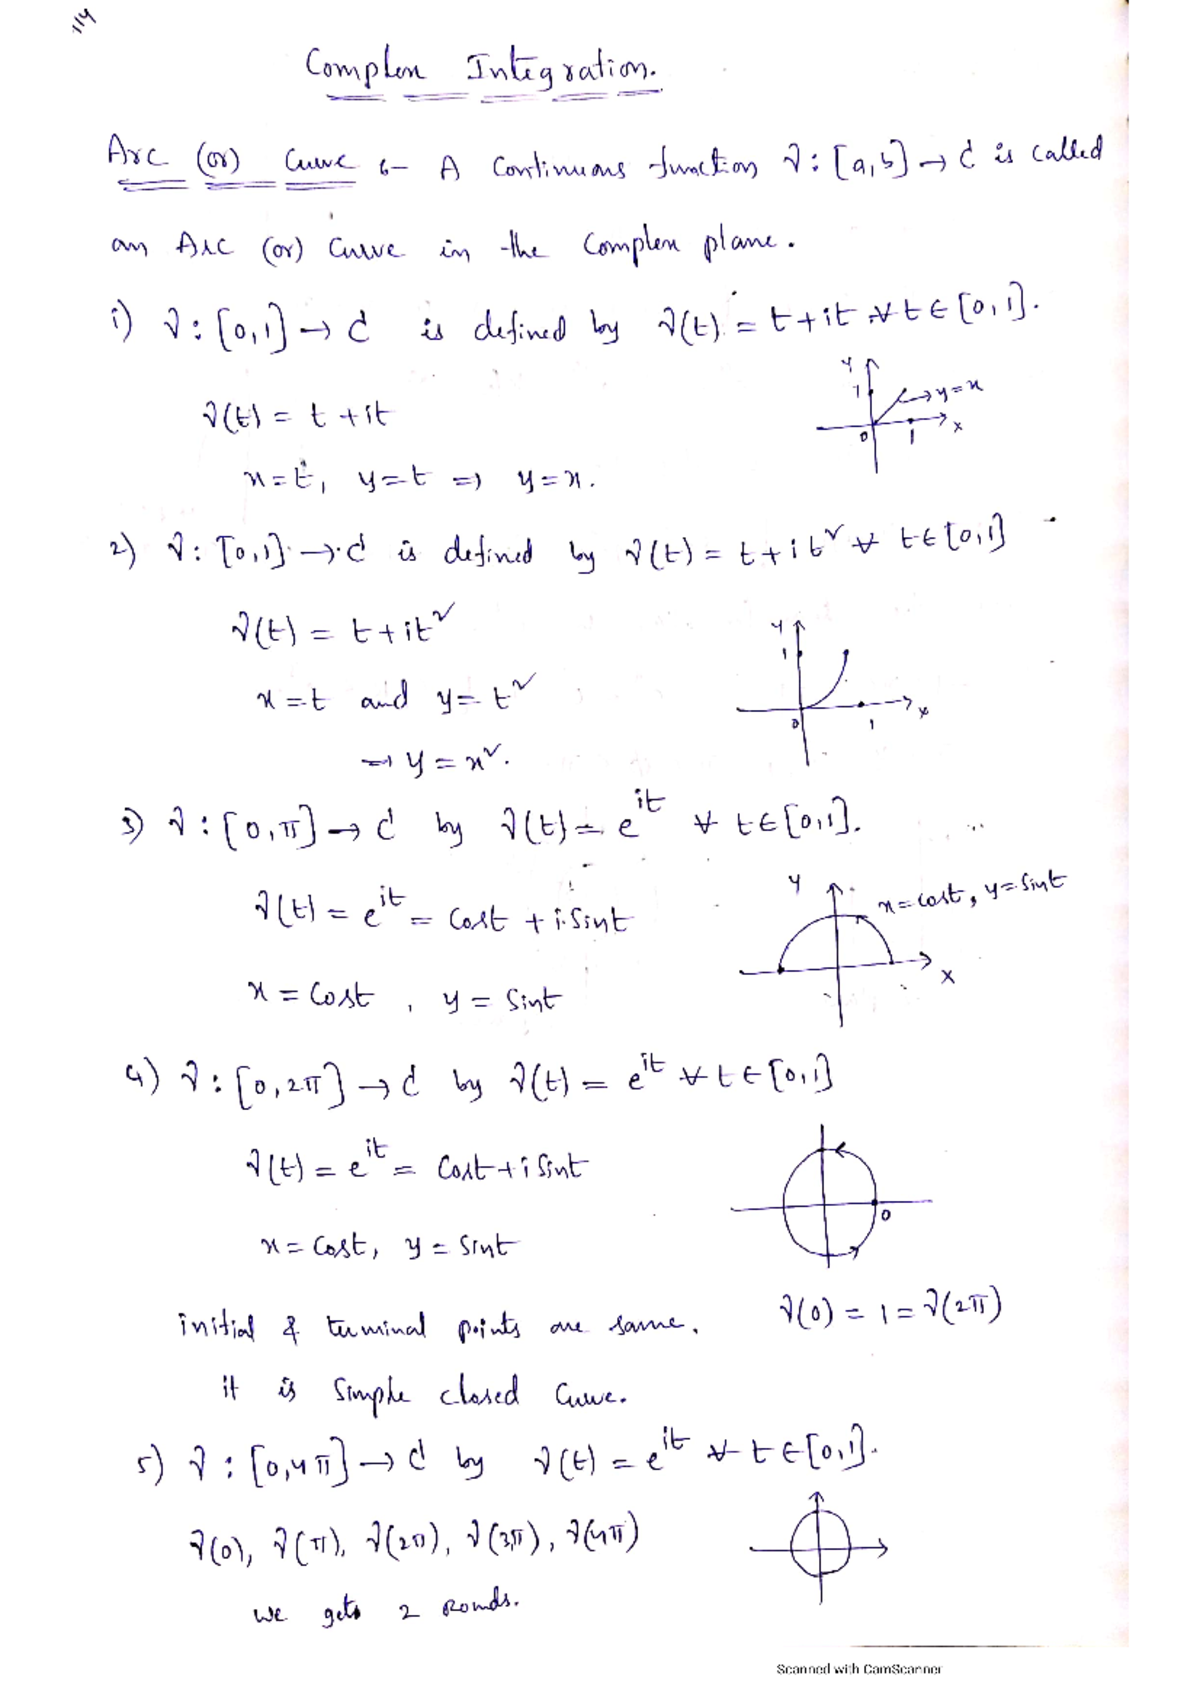 114
Complex Integration.
Arc (or) Curve :- A Continuous function γ : [a,b] → ₵ is called
an Arc (or) Curve in the Complex plane.
1) γ : [0,1] → ₵ is defined by γ(t) = t+it ∀ t ∈ [0,1].
γ(t) = t + it
x=t, y=t ⇒ y=x.
y
1
→ y=x
0 1 x
2) γ : [0,1] → ₵ is defined by γ(t) = t+it² ∀ t∈[0,1]
γ(t) = t+it²
x=t and y=t²
⇒ y=x².
y
1
0 1 x
3) γ : [0,π] → ₵ by γ(t) = e^{it} ∀ t∈[0,1].
γ(t) = e^{it} = Cost + i.Sint
x = Cost , y = Sint
y
x=Cost, y=Sint
x
4) γ : [0,2π] → ₵ by γ(t) = e^{it} ∀ t∈[0,1]
γ(t) = e^{it} = Cost+i Sint
x = Cost, y = Sint
0
initial & terminal points are same. γ(0) = 1 = γ(2π)
it is Simple closed Curve.
5) γ : [0,4π] → ₵ by γ(t) = e^{it} ∀ t∈[0,1].
γ(0), γ(π), γ(2π), γ(3π), γ(4π)
we gets 2 Rounds.
Scanned with CamScanner